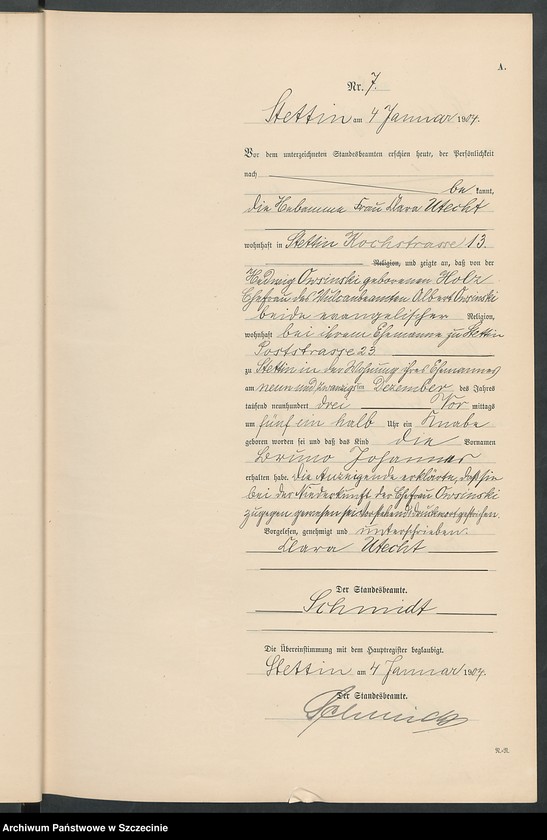 A.
Nr. 7.
Stettin am 4 Januar 1904.
Vor dem unterzeichneten Standesbeamten erschien heute, der Persönlichkeit
nach
be kannt,
die Hebamme Frau Clara Utecht
wohnhaft in Stettin Kochstrasse 13.
Religion, und zeigte an, daß von der
Hedwig Orsinski geborenen Holz
Ehefrau des Vulcanbeamten Albert Orsinski
beide evangelischer Religion,
wohnhaft bei ihrem Ehemanne zu Stettin
Poststrasse 23
zu Stettin in der Wohnung ihres Ehemannes
am neun und zwanzigsten Dezember des Jahres
tausend neunhundert drei Vor mittags
um fünf ein halb Uhr ein Knabe
geboren worden sei und daß das Kind die Vornamen
Bruno Johannes
erhalten habe. Die Anzeigende erklärte, daß sie
bei der Niederkunft der Ehefrau Orsinski
zugegen gewesen sei. Vorstehend Druckwort gestrichen.
Vorgelesen, genehmigt und unterschrieben.
Clara Utecht
Der Standesbeamte.
Schmidt
Die Übereinstimmung mit dem Hauptregister beglaubigt.
Stettin am 4 Januar 1904.
Der Standesbeamte.
Schmidt
Archiwum Państwowe w Szczecinie